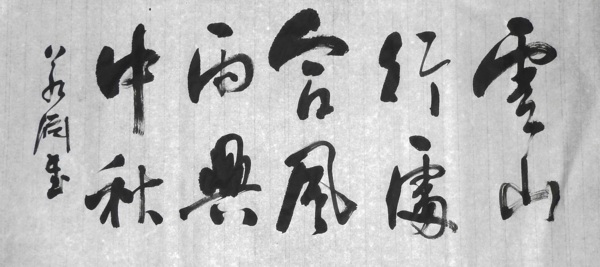 雲山
行處
合風
雨興
中秋